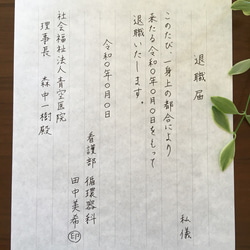 退職届
私儀
このたび、一身上の都合により
来たる令和〇年〇月〇日をもって
退職いたします。
令和〇年〇月〇日
看護部 循環器科
田中美希 印
社会福祉法人青空医院
理事長 森中一樹殿